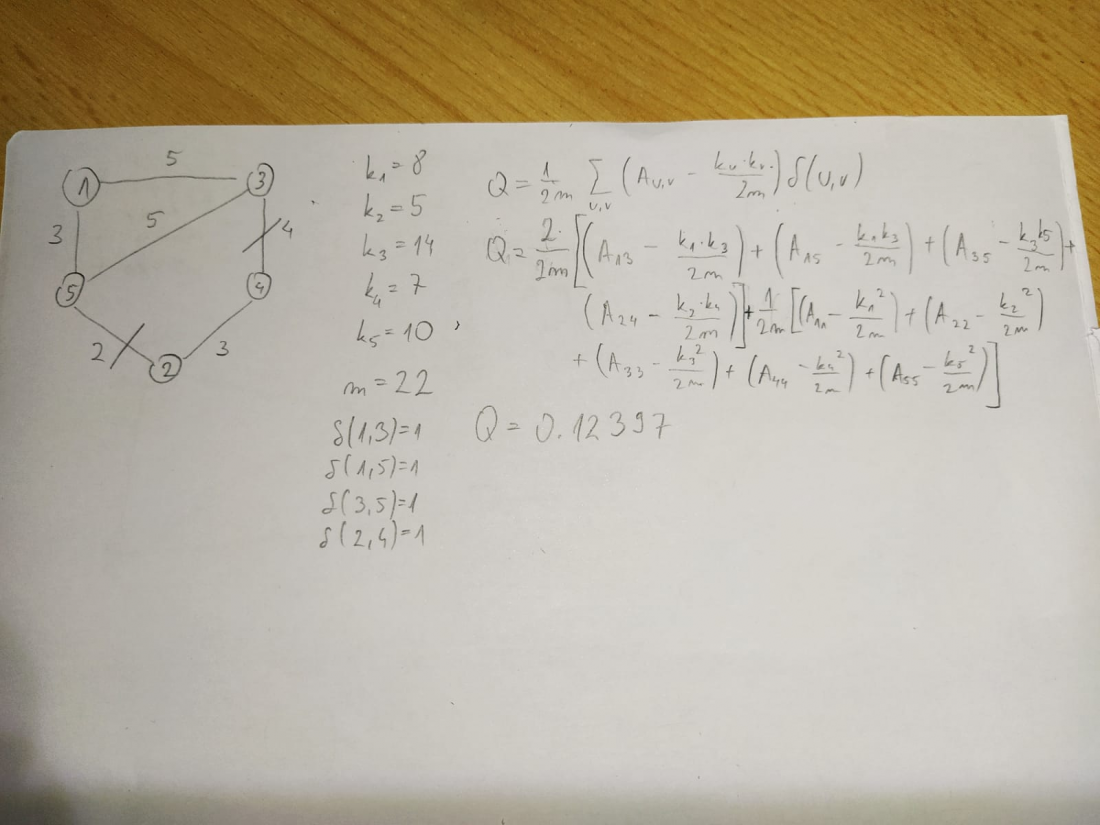 5
1
3
5
3
4
5
4
2
3
2
k₁ = 8
k₂ = 5
k₃ = 14
k₄ = 7
k₅ = 10 ,
m = 22
δ(1,3)=1
δ(1,5)=1
δ(3,5)=1
δ(2,4)=1
Q = 1/2m Σ_{u,v} (A_{u,v} - k_u·k_v./2m) δ(u,v)
Q = 2·/2m [(A₁₃ - k₁·k₃/2m) + (A₁₅ - k₁k₃/2m) + (A₃₅ - k₃k₅/2m) +
(A₂₄ - k₂·k₄/2m)] + 1/2m [(A₁₁ - k₁²/2m) + (A₂₂ - k₂²/2m)
+ (A₃₃ - k₃²/2m) + (A₄₄ - k₄²/2m) + (A₅₅ - k₅²/2m)]
Q = 0.12397